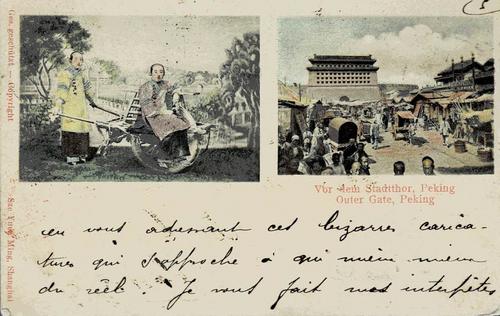 Ges. geschützt — Copyright
Sze Yuen Ming, Shanghai
5
Vor dem Stadtthor, Peking
Outer Gate, Peking
en vous adressant ces bizarres carica-
tures qui s'approche à qui mieux mieux
du réel. Je vous fait mes interprètes